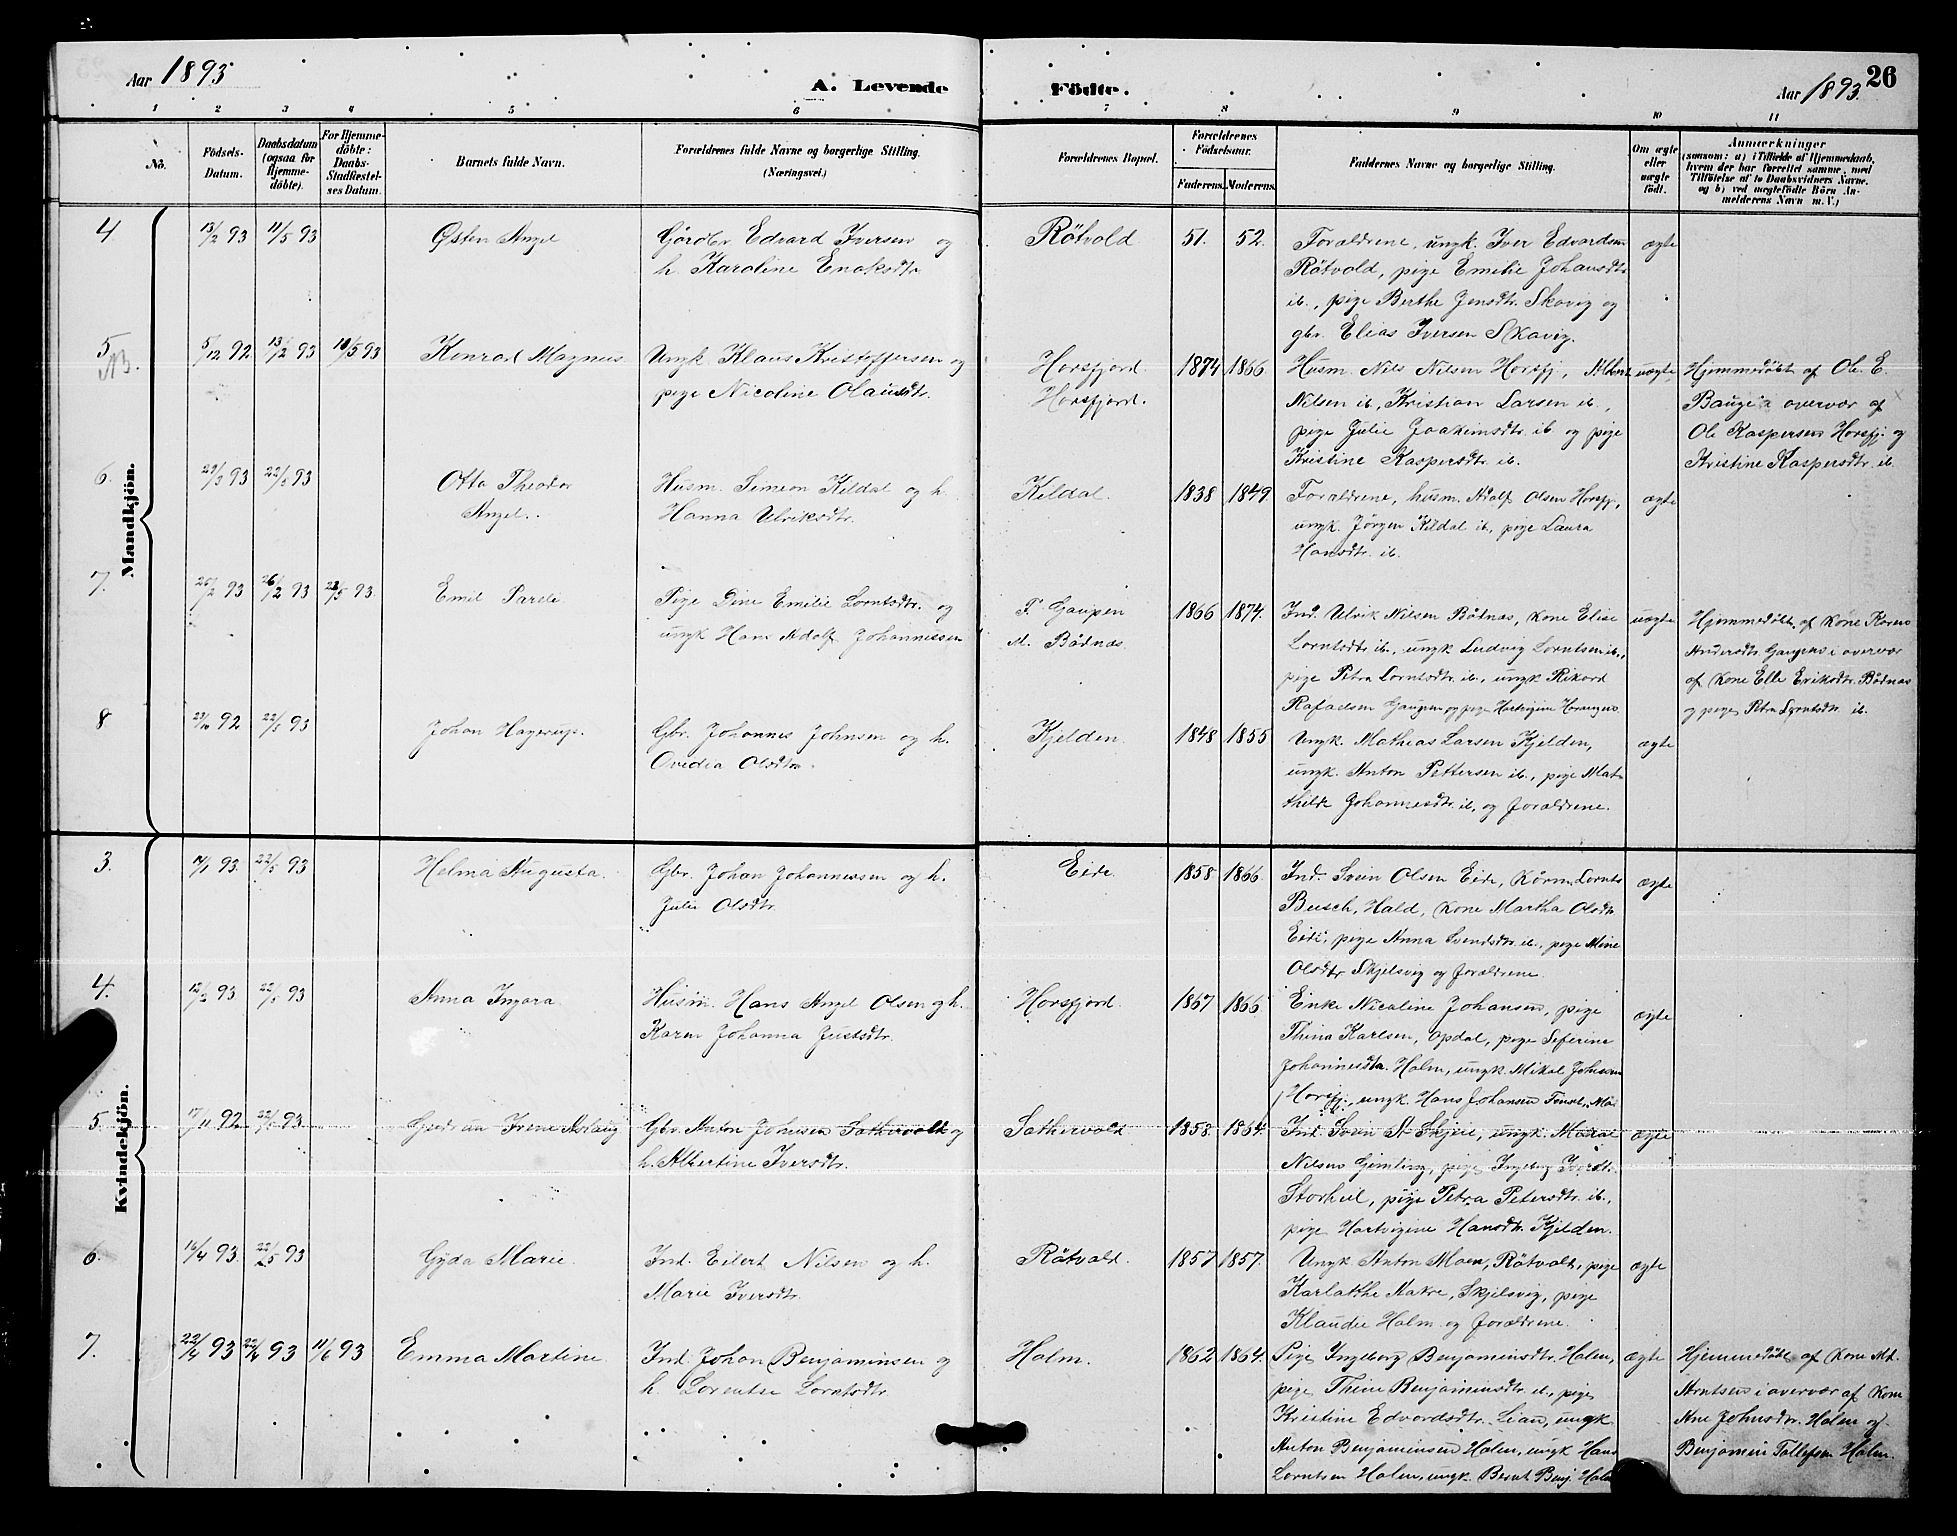 Aar 1893
A. Levende
Födte.
Aar 1893.
26
1 2 3 4 5 6 7 8 9 10 11
No.
Födsels-
Datum.
Daabsdatum
(ogsaa for
Hjemme-
döbte).
For Hjemme-
döbte:
Daabs-
Stadfæstel-
ses Datum.
Barnets fulde Navn.
Forældrenes fulde Navne og borgerlige Stilling.
(Næringsvei.)
Forældrenes Bopæl.
Forældrenes
Födselsaar.
Faderens. Moderens.
Faddernes Navne og borgerlige Stilling.
Om ægte
eller
uægte
födt.
Anmærkninger
(saasom: a) i Tilfælde af Hjemmedaab,
hvem der har forrettet samme, med
Tilföielse af to Daabsvidners Navne.
og b) ved uægtefödte Börn An-
melderens Navn m. V.)
Mandkjön.
4. 13/2 93 11/5 93 Østen Angel Gårdbr Edvard Iversen og Røtvold 51. 52. Forældrene, ungk. Iver Edvardsen ægte
h. Karoline Enoksdtr Røtvold, pige Emilie Johansdtr
ib., pige Berthe Jensdtr. Skavig og
gbr. Elias Iversen Skavig.
5. NB. 5/12 92 13/2 93 10/5 93 Konrad Magnus Ungk Klaus Kristoffersen og Horsfjord 1874 1866 Husm. Nils Nilsen Horsfj., uægte Hjemmedøbt af Ole E.
pige Nicoline Olausdtr. Horsfjord. Nilsen ib., Kristian Larsen ib., overvær af
pige Julie Joakimsdtr. ib og pige Ole Kaspersen Horsfj. og
Kristine Kaspersdtr. ib. Kristine Kaspersdtr. ib
6. 29/3 93 22/5 93 Otto Theodor Husm. Simeon Kildal og h. Kildal. 1838 1849 Forældrene, husm. Adolf Olsen Horsfj, ægte
Angel. Hanna Ulriksdtr. ungk. Jörgen Kildal ib, pige Laura
Hansdtr. ib.
7. 20/2 93 26/2 93 22/5 93. Emil Pareli Pige Dine Emilie Lorntsdtr. og F. Gaupen 1866 1874. Ind. Ulrik Nilsen Bådnas, kone Elise uægte Hjemmedøbt af kone Karen
ungk Hans Adolf Johannessen M. Bådnas. Lorntsdtr ib., ungk Ludvig Lorntsen ib., Andersdtr Gaupen i overvær
pige Petra Lorntsdtr. ib., ungk Rikard af kone Elle Eriksdtr. Bådnas
Rafaelsen Gaupen og pige Hartvigine og pige Petra Lorntsdtr ib.
8 92 22/5 93 Johan Hagerup. Gbr. Johannes Johnsen og h. Kjelden. 1848 1855 Ungk. Mathias Larsen Kjelden, ægte
Ovidia Olsdtr. ungk. Anton Pettersen ib., pige Mat-
hilde Johannesdtr. ib, og forældrene.
Kvindekjön.
3. 93. 22/5 93 Helma Augusta. Gbr. Johan Johannessen og h. Eide 1858 1866 Ind. Svein Olsen Eide, Lornts ægte
Julie Olsdtr. Busch, Hald, kone Martha Olsdtr
Eide, pige Anna Svendsdtr. ib., pige Mine
Olsdtr Skjelsvig og forældrene.
4. 12/3 93 22/5 93 Anna Ingara Husm. Hans Angel Olsen og h. Horsfjord. 1867 1866 Enke Nicoline Johansen, pige ægte
Karen Johanna Justsdtr. Thina Karlsen, Opdal, pige Seferine
Johannesdtr. Holm, ungk Mikal Johnsen
Horsfj., ungk. Hans Johansen
5. 17/11 92 22/5 93 Gudrun Irene Aslaug Gbr Anton Johnsen Sathervold og Sathervold 1858. 1864. Ind Svein Skjeie, ungk. ægte
h. Albertine Iversdtr. Nilsen Gimling, pige Ingeborg
Storheil, pige Petra Petersdtr. ib.,
pige Hartvigine Hansdtr. Kjelden.
6. 16/4 93 22/5 93 Gyda Marie Ind. Eilert Nilsen og h. Røtvold. 1857 1857. Ungk Anton Moen, Røtvold, pige ægte
Marie Iversdtr. Karlatthe Makre, Skjelsvig, pige
Klaudie Holm og forældrene.
7. 22/4 93 22/4 93 11/6 93 Emma Martine Ind. Johan Benjaminsen og Holm. 1862 1864. Pige Ingeborg Benjaminsdtr. Holm, ægte Hjemmedøbt af kone Mt.
h. Lorentse Lorntsdtr pige Thine Benjaminsdtr ib., pige Arntsen i overvær af kone
Kristine Edvardsdtr. Lian, ungk Ane Johnsdtr. Holm og
Anton Benjaminsen Holm, ungk Hans Benjamin Tollefsen Holm.
Lorntsen Holm, ungk. Bernt Benj. Holm